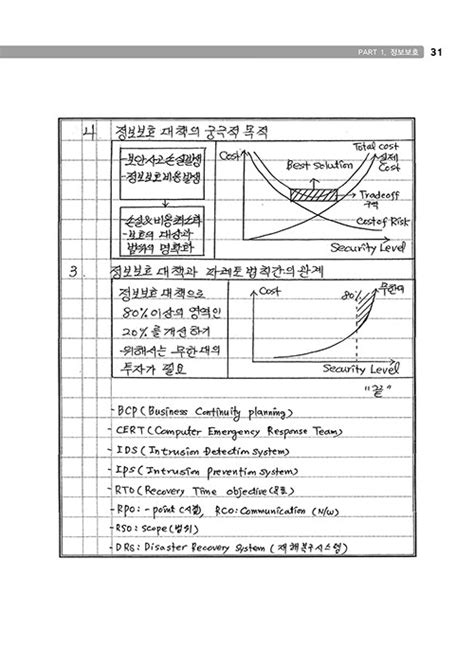 PART 1. 정보보호 31
4 정보보호 대책의 궁극적 목적
-보안사고손실발생
-정보보호비용발생
-손실&비용최소화
-보호의 대상과
범위의 명확화
Cost
Total cost
실제
Cost
Best Solution
Tradeoff
구역
Cost of Risk
Security Level
3. 정보보호 대책과 파레토 법칙간의 관계
정보보호 대책으로
80%이상의 영역인
20%를 개선하기
위해서는 무한대의
투자가 필요
Cost
80%
무한대
Security Level
"끝"
- BCP (Business Continuity planning)
- CERT (Computer Emergency Response Team)
- IDS (Intrusion Detection System)
- IPS (Intrusion Prevention System)
- RTO (Recovery Time objective (목표)
- RPO: - point (시점), RCO: Communication (N/W)
- RSO: Scope (범위)
- DRS: Disaster Recovery System (재해복구시스템)